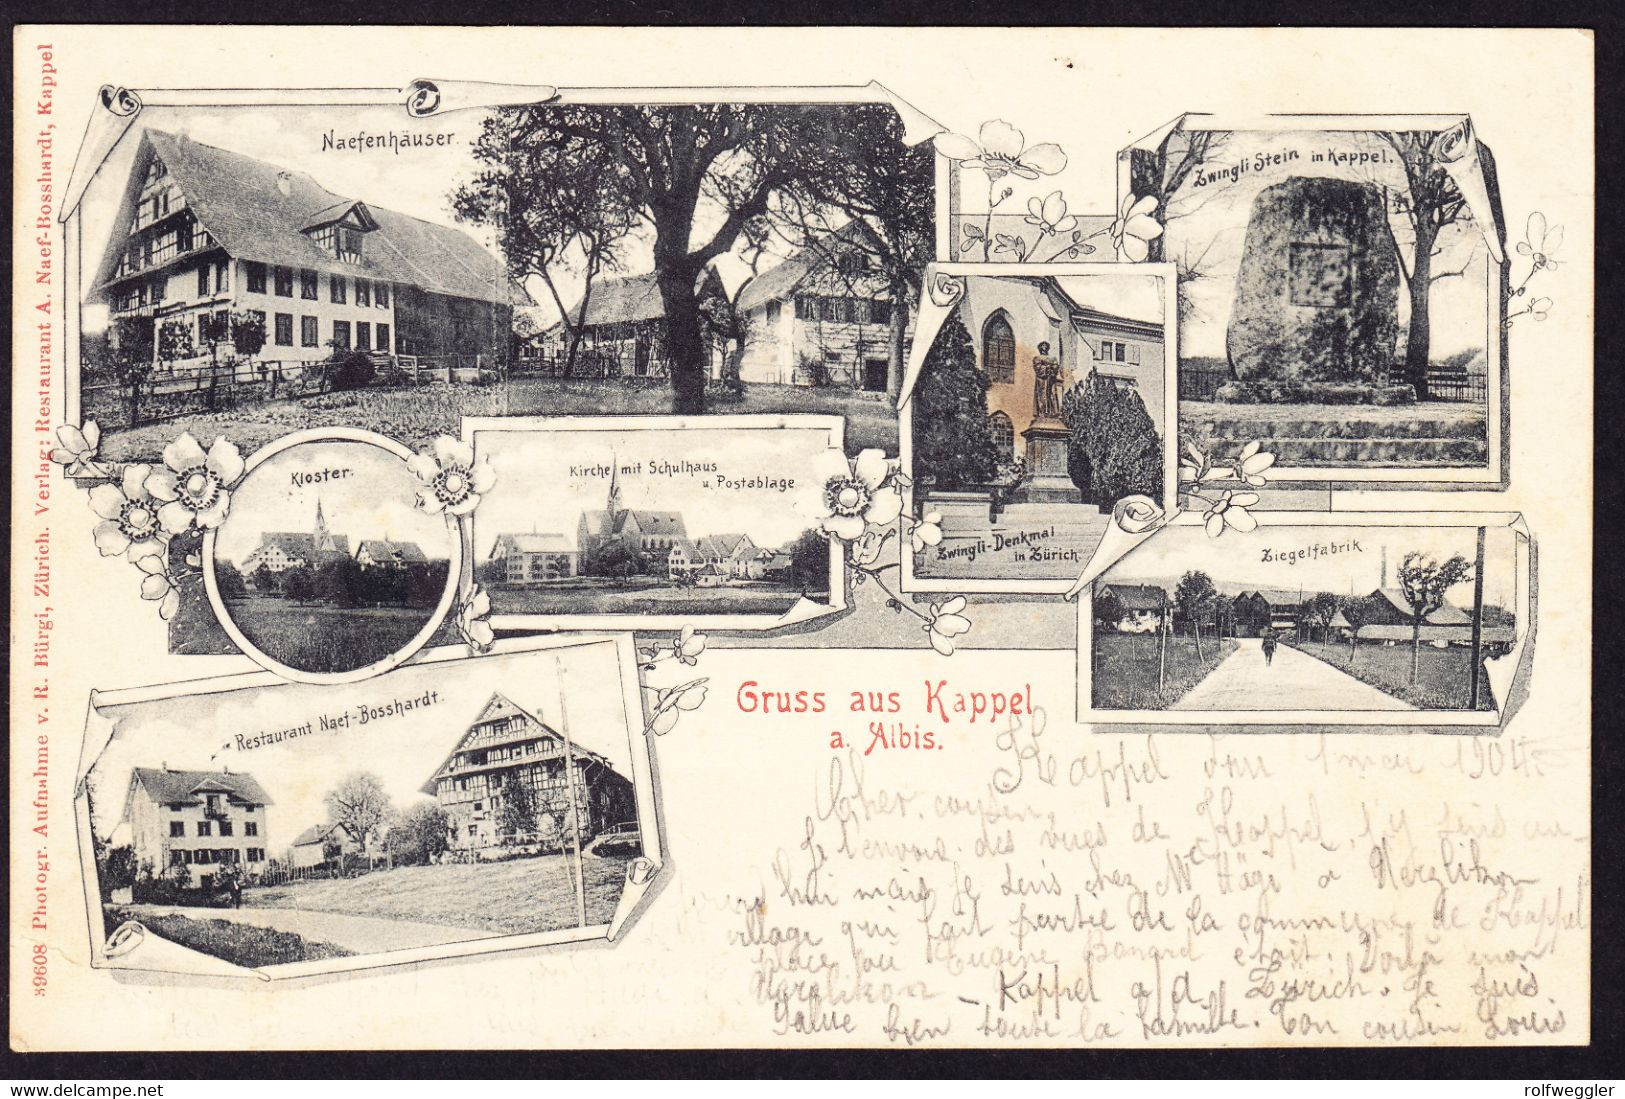 39608 Photogr. Aufnahme v. R. Bürgi, Zürich. Verlag: Restaurant A. Naef-Bosshardt, Kappel
Naefenhäuser.
Zwingli Stein in Kappel.
Kloster.
Kirche mit Schulhaus
u. Postablage
Zwingli-Denkmal
in Zürich
Ziegelfabrik
Restaurant Naef-Bosshardt.
Gruss aus Kappel
a. Albis.
Kappel 1 mai 1904
Cher cousin,
Je t'envois des vues de Kappel, j'y suis
mais je suis chez Mr Hägi a Herzlikon
village qui fait partie de la commune de Kappel
place où Eugène était. Voilà mon
Kappel a/d Zürich. Je suis
Salue bien toute la famille. Ton cousin Louis
rolfweggler